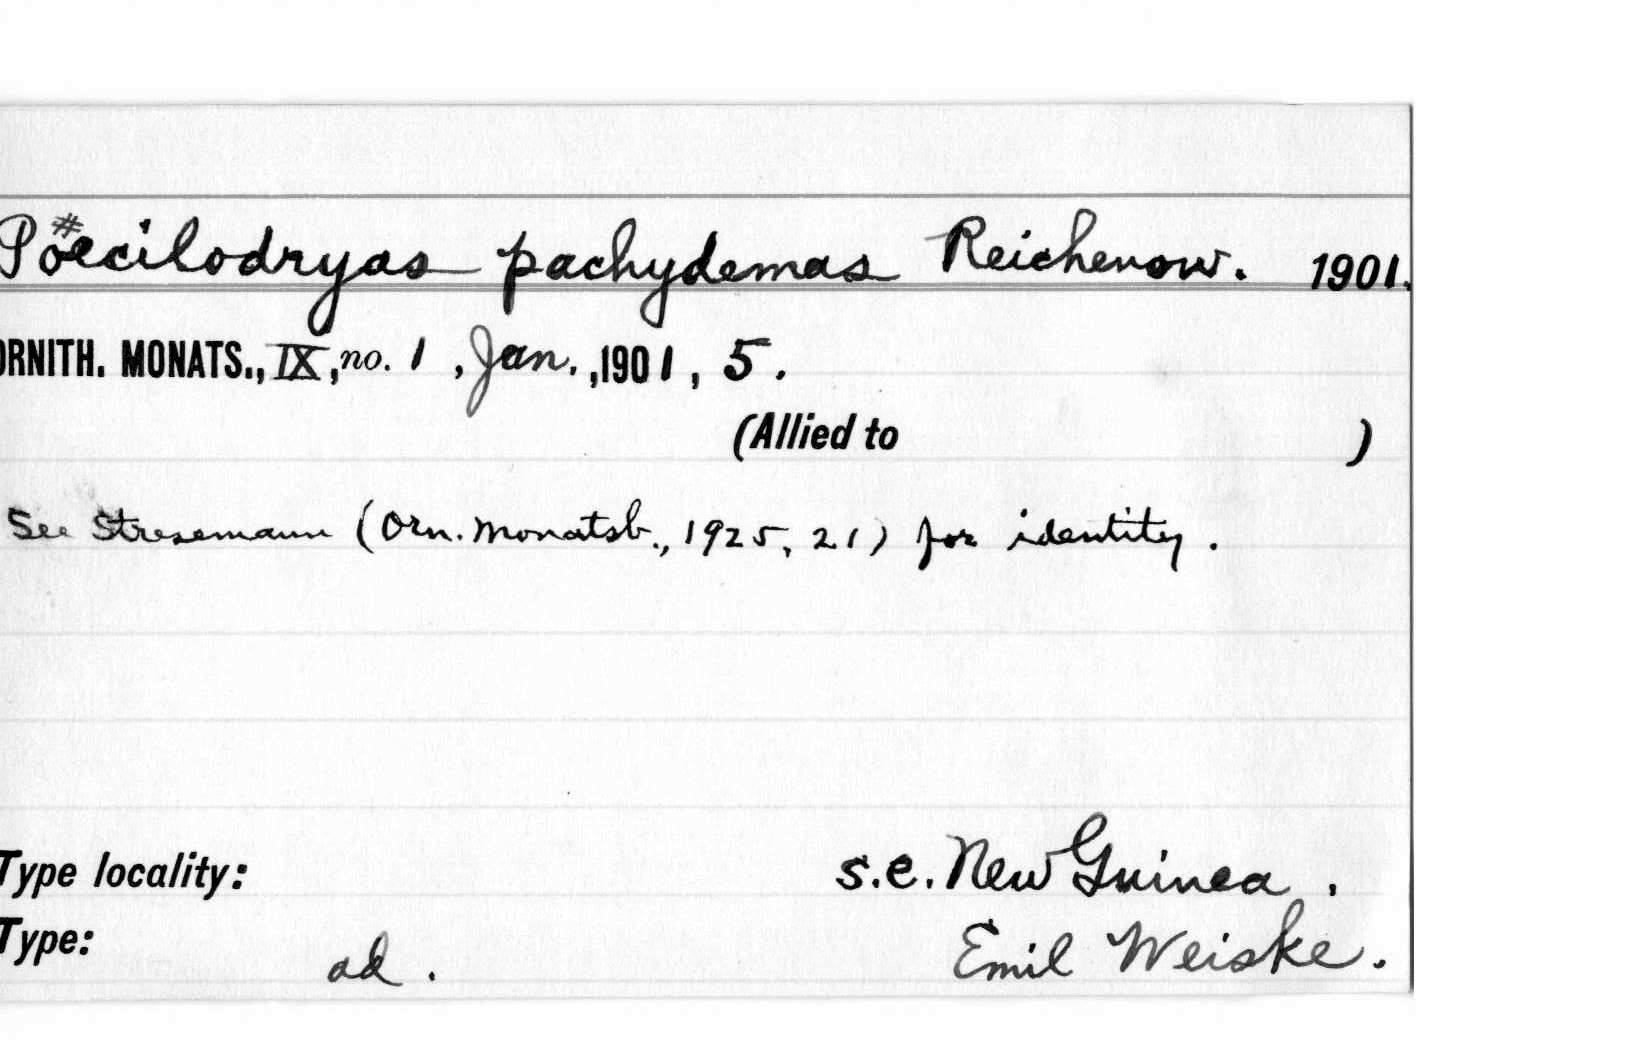 Poecilodryas pachydemas Reichenow. 1901.
ORNITH. MONATS., IX, no. 1, Jan., 1901, 5.
(Allied to )
See Stresemann (Orn. Monatsb., 1925, 21) for identity.
Type locality: s.e. New Guinea.
Type: ad. Emil Weiske.